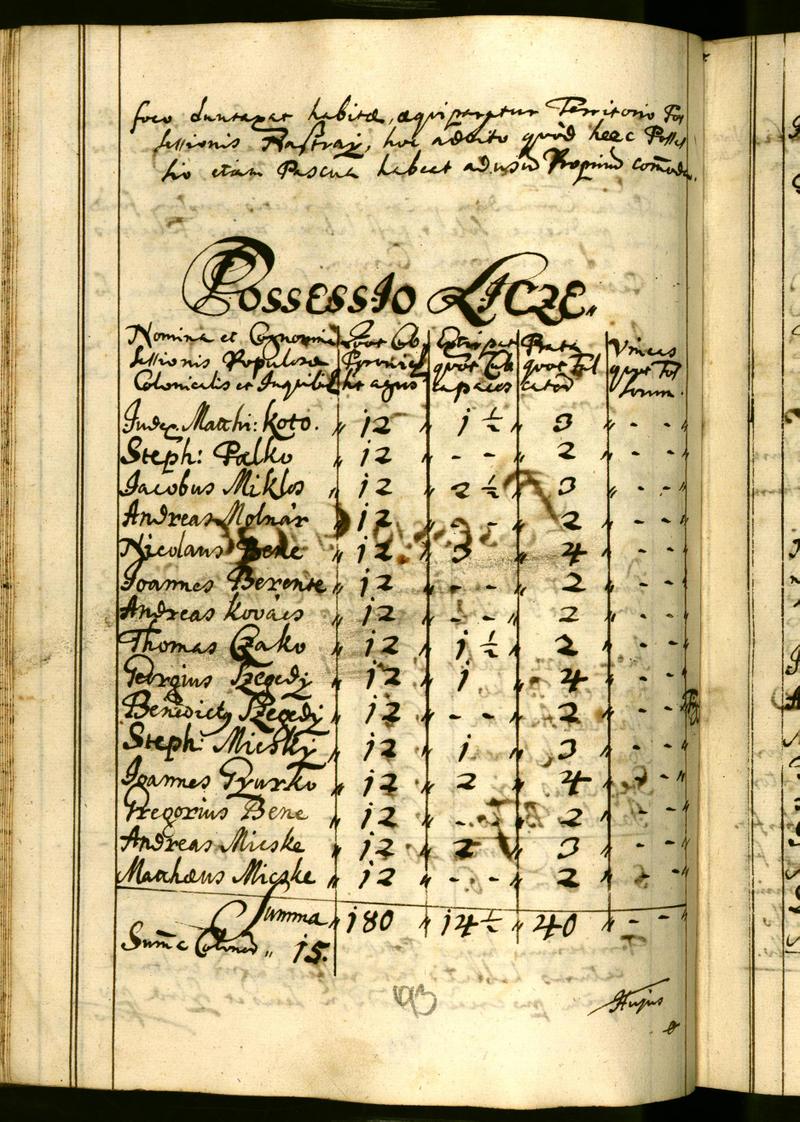 foco duntaxat habitæ, æquiparetur Territorio Pos
sessionis Rastraj, hoc addito quòd heec Posses
sio etiam Pascua habeat ad usũ Propiũ com̃oda.
Possessio Licze.
Nomina et Cognomina Quot Cub Extirpat Prata Vineas
sessionis Populosæ quot Cub quot Fal quot Fos
Colonicalis et Inquilin capaces sorum.
Judex Matthi: Koto. " 12 " 1 ½ " 3 " - - "
Steph: Palko " 12 " - - " 2 " - - "
Jacobus Miklos " 12 " 2 ½ " 3 " - - "
Andreas Molnár " 12 " - - " 2 " - - "
Nicolaus Bene " 12 " 3 " 4 " - - "
Joannes Berente " 12 " - - " 2 " - - "
Andreas Kovács " 12 " - - " 2 " - - "
Thomas Czako " 12 " 1 ½ " 2 " - - "
Georgius Szegedy " 12 " 1 " 4 " - - "
Benedictq Szegedy " 12 " - - " 2 " - - "
Steph: Micskj " 12 " 1 " 3 " - - "
Joannes Gyurko " 12 " 2 " 4 " - - "
Gregorius Bene " 12 " - - " 2 " - - "
Andreas Micske " 12 " 2 " 3 " - - "
Matthæus Micske " 12 " - - " 2 " - - "
Summa " 180 " 14 ½ " 40 " - - "
Sum̃a Colonor " 15.
193
Hujus